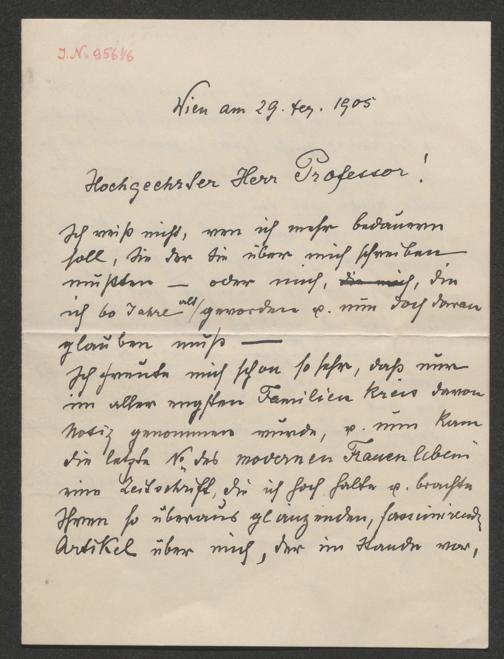 J.N. 95646
Wien am 29. Dez. 1905
Hochgeehrter Herr Professor!
Ich weiß nicht, wen ich mehr bedauern
soll, Sie der Sie über mich schreiben
mußten — oder mich, die mich, die
ich 60 Jahre alt/ geworden u. nun doch daran
glauben muß —
Ich freute mich schon so sehr, daß nur
im aller engsten Familien Kreis davon
Notiz genommen wurde, u. nun kam
die letzte No des modernen Frauenlebens
eine Zeitschrift, die ich hoch halte u. brachte
Ihren so überaus glänzenden, fascinirenden
Artikel über mich, der im Stande war,